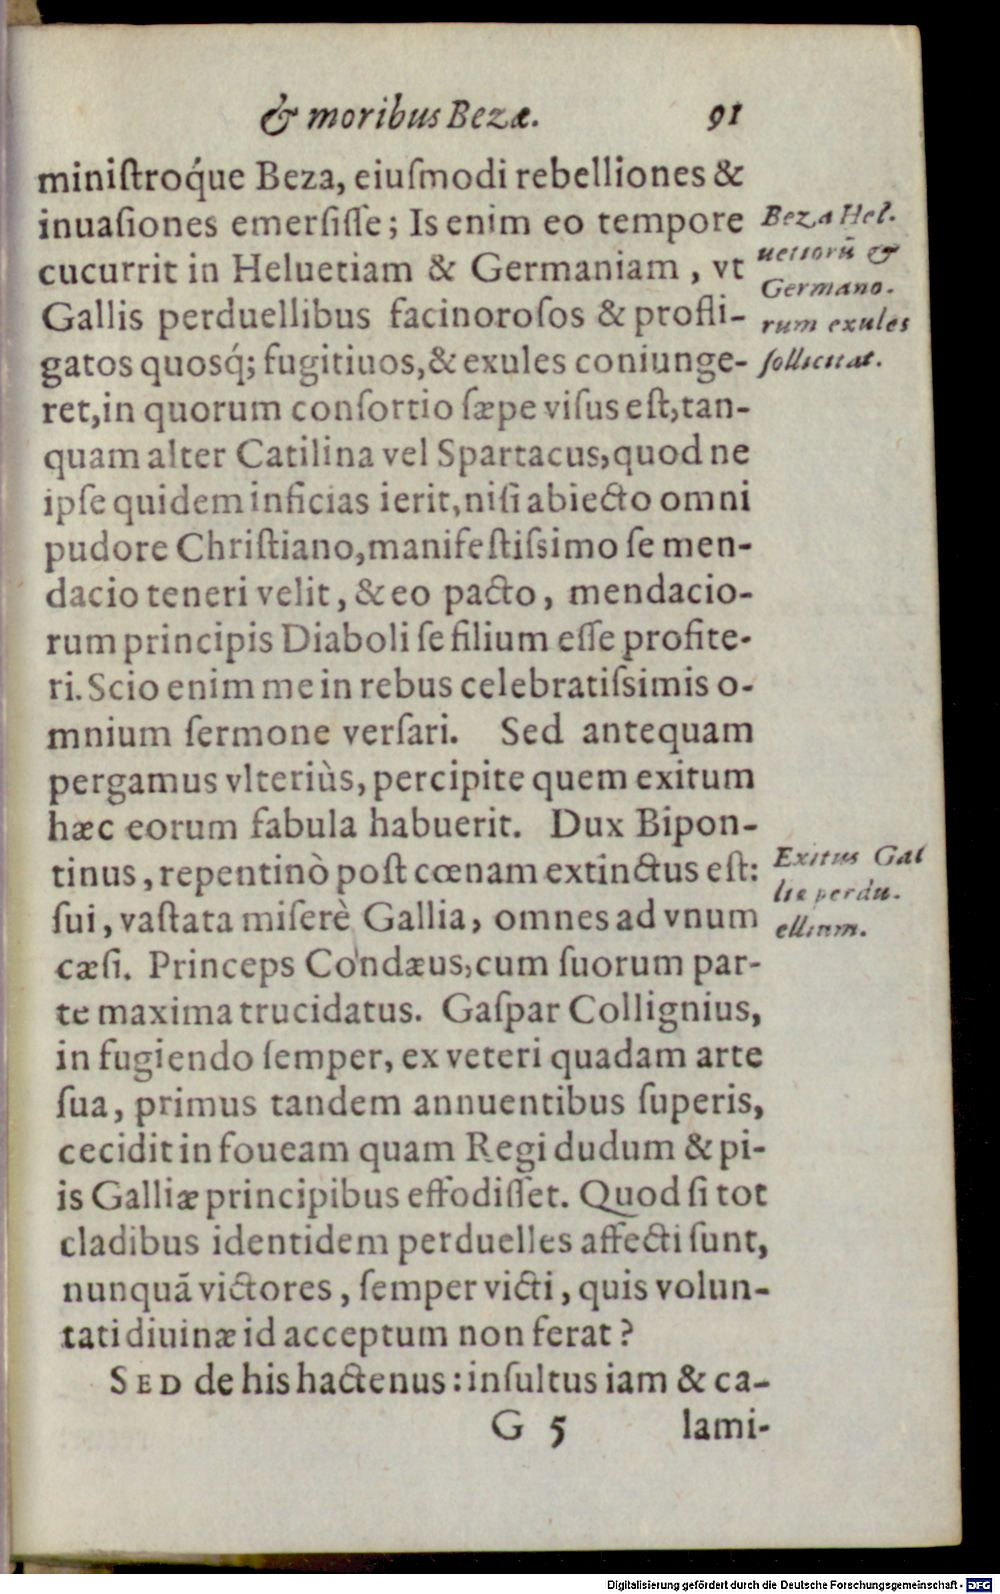 & moribus Bezæ. 91
miniſtroq́ue Beza, eiuſmodi rebelliones &
inuaſiones emerſiſſe; Is enim eo tempore
cucurrit in Heluetiam & Germaniam, vt
Gallis perduellibus facinoroſos & profli-
gatos quosq́; fugitiuos, & exules coniunge-
ret, in quorum conſortio ſæpe viſus eſt, tan-
quam alter Catilina vel Spartacus, quod ne
ipſe quidem inficias ierit, niſi abiecto omni
pudore Chriſtiano, manifeſtiſsimo ſe men-
dacio teneri velit, & eo pacto, mendacio-
rum principis Diaboli ſe filium eſſe profite-
ri. Scio enim me in rebus celebratiſsimis o-
mnium ſermone verſari. Sed antequam
pergamus vlteriùs, percipite quem exitum
hæc eorum fabula habuerit. Dux Bipon-
tinus, repentinò poſt cœnam extinctus eſt:
ſui, vaſtata miſerè Gallia, omnes ad vnum
cæſi. Princeps Condæus, cum ſuorum par-
te maxima trucidatus. Gaſpar Collignius,
in fugiendo ſemper, ex veteri quadam arte
ſua, primus tandem annuentibus ſuperis,
cecidit in foueam quam Regi dudum & pi-
is Galliæ principibus effodiſſet. Quod ſi tot
cladibus identidem perduelles affecti ſunt,
nunquā victores, ſemper victi, quis volun-
tati diuinæ id acceptum non ferat?
SED de his hactenus: inſultus iam & ca-
G 5 lami-
Beza Hel-
uetiorū &
Germano-
rum exules
ſollicitat.
Exitus Gal
liæ perdu-
ellium.
Digitalisierung gefördert durch die Deutsche Forschungsgemeinschaft - DFG